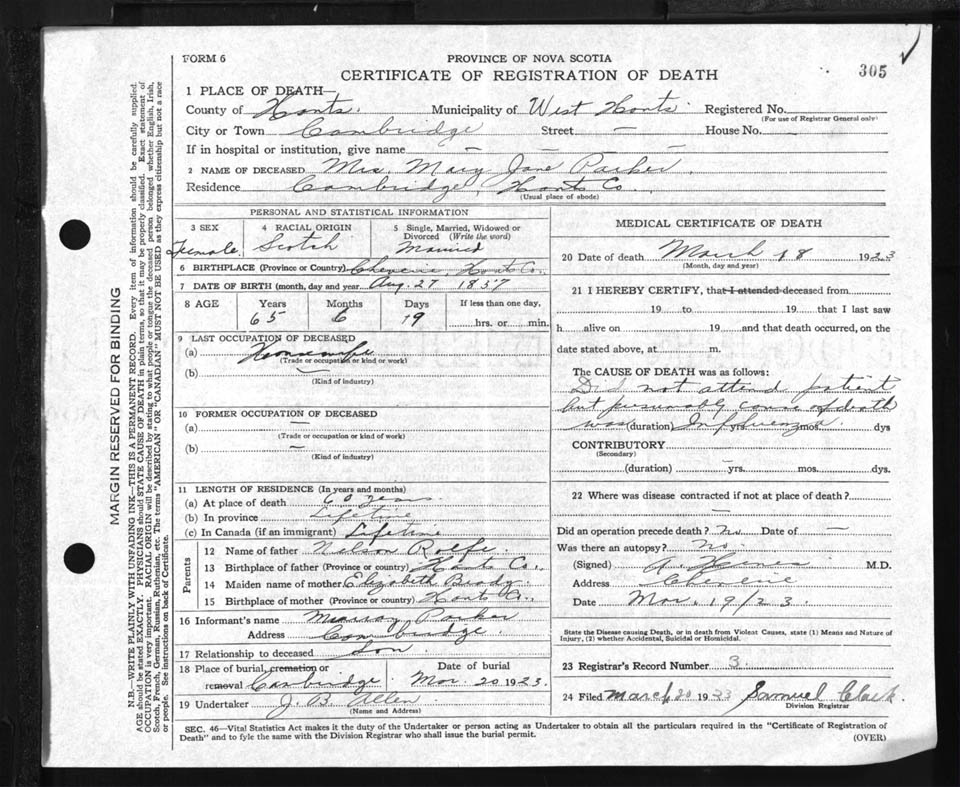 FORM 6
PROVINCE OF NOVA SCOTIA
305
CERTIFICATE OF REGISTRATION OF DEATH
1 PLACE OF DEATH—
County of Hants. Municipality of West Hants. Registered No.
(For use of Registrar General only)
City or Town Cambridge Street — House No.
If in hospital or institution, give name — —
2 NAME OF DECEASED Mrs. Mary Jane Parker.
Residence Cambridge, Hants Co.
(Usual place of abode)
PERSONAL AND STATISTICAL INFORMATION
3 SEX
Female.
4 RACIAL ORIGIN
Scotch
5 Single, Married, Widowed or
Divorced (Write the word)
Married
6 BIRTHPLACE (Province or Country) Cheverie Hants Co.
7 DATE OF BIRTH (month, day and year) Aug. 27 1857
8 AGE Years Months Days If less than one day,
65 6 19 hrs. or min.
9 LAST OCCUPATION OF DECEASED
(a) Housewife
(Trade or occupation or kind or work)
(b) —
(Kind of industry)
10 FORMER OCCUPATION OF DECEASED
(a) —
(Trade or occupation or kind of work)
(b) —
(Kind of industry)
11 LENGTH OF RESIDENCE (In years and months)
(a) At place of death 60 years
(b) In province Lifetime
(c) In Canada (if an immigrant) Lifetime
Parents
12 Name of father Nelson Rolfe.
13 Birthplace of father (Province or country) Hants Co.
14 Maiden name of mother Elizabeth Brady.
15 Birthplace of mother (Province or country) Hants Co.
16 Informant's name Murray Parker
Address Cambridge.
17 Relationship to deceased Son
18 Place of burial, cremation or
removal Cambridge.
Date of burial
Mar. 20 1923.
19 Undertaker J. B. Allen
(Name and Address)
MEDICAL CERTIFICATE OF DEATH
20 Date of death March 18 1923
(Month, day and year)
21 I HEREBY CERTIFY, that I attended deceased from
19 to 19 that I last saw
h alive on 19 and that death occurred, on the
date stated above, at m.
The CAUSE OF DEATH was as follows:
Did not attend patient
but presumably cause of death
was (duration) Influenza. yrs. mos. dys
CONTRIBUTORY
(Secondary)
(duration) — yrs. mos. dys.
22 Where was disease contracted if not at place of death?
—
Did an operation precede death? No. Date of —
Was there an autopsy? No.
(Signed) M.D.
Address Cheverie
Date Mar. 19/23.
State the Disease causing Death, or in death from Violent Causes, state (1) Means and Nature of
Injury, (2) whether Accidental, Suicidal or Homicidal.
23 Registrar's Record Number 3.
24 Filed March 20 1923 Samuel Clark.
Division Registrar
SEC. 46—Vital Statistics Act makes it the duty of the Undertaker or person acting as Undertaker to obtain all the particulars required in the "Certificate of Registration of
Death" and to fyle the same with the Division Registrar who shall issue the burial permit.
(OVER)
MARGIN RESERVED FOR BINDING
N.B.—WRITE PLAINLY WITH UNFADING INK—THIS IS A PERMANENT RECORD. Every item of information should be carefully supplied.
AGE should be stated EXACTLY. PHYSICIANS should STATE CAUSE OF DEATH in plain terms, so that it may be properly classified. Exact statement of
OCCUPATION is very important. RACIAL ORIGIN will be described by stating to what people or tongue the deceased person belonged whether English, Irish,
Scotch, French, German, Russian, Ruthenian, etc. The terms "AMERICAN" OR "CANADIAN" MUST NOT BE USED as they express citizenship but not a race
or people. See instructions on back of Certificate.